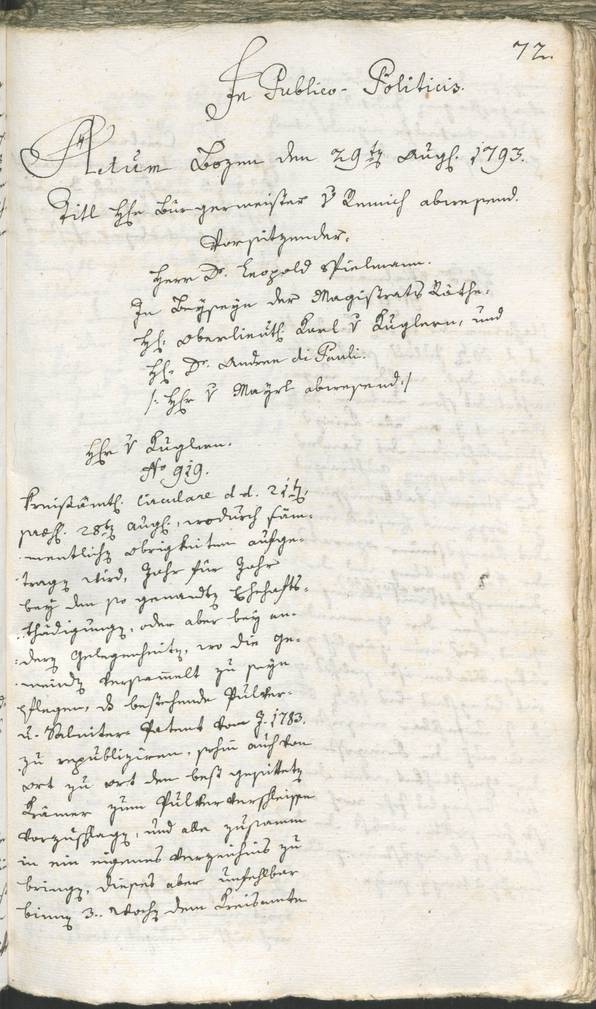 72.
In Publico-Politicis.
Actum Bozen den 29t Augl. 1793.
Titl Hhr Bürgermeister v Remich abwesend.
Vorsitzender.
Herr Dr. Leopold Spielmann.
In Beyseyn der Magistrats Räthe.
HH. Oberlieut. Karl v Kuglern, und
HH. Dr. Andree di Pauli.
/: Hhr v Mayrl abwesend :/
Hhr v Kuglern.
No 919.
Kreisämtl. Circulare d d. 21t,
praes. 28t Augl., wodurch säm-
mentliche Obrigkeiten aufge-
tragen wird, Jahr für Jahr
bey den so genandten Ehehafts-
thädigungen, oder aber bey an-
dern Gelegenheiten, wo die Ge-
meinden versammelt zu seyn
pflegen, das bestehende Pulver-
u. Saliniter-Patent vom J. 1783.
zu republiziren, sohin auch von
Ort zu Ort den best gesitteten
Krämer zum Pulververschleisse
vorzuschlagen, und alle zusamm
in ein eigenes Verzeichnis zu
bringen, dieses aber unfehlbar
binnen 3. Wochen dem Kreisamte